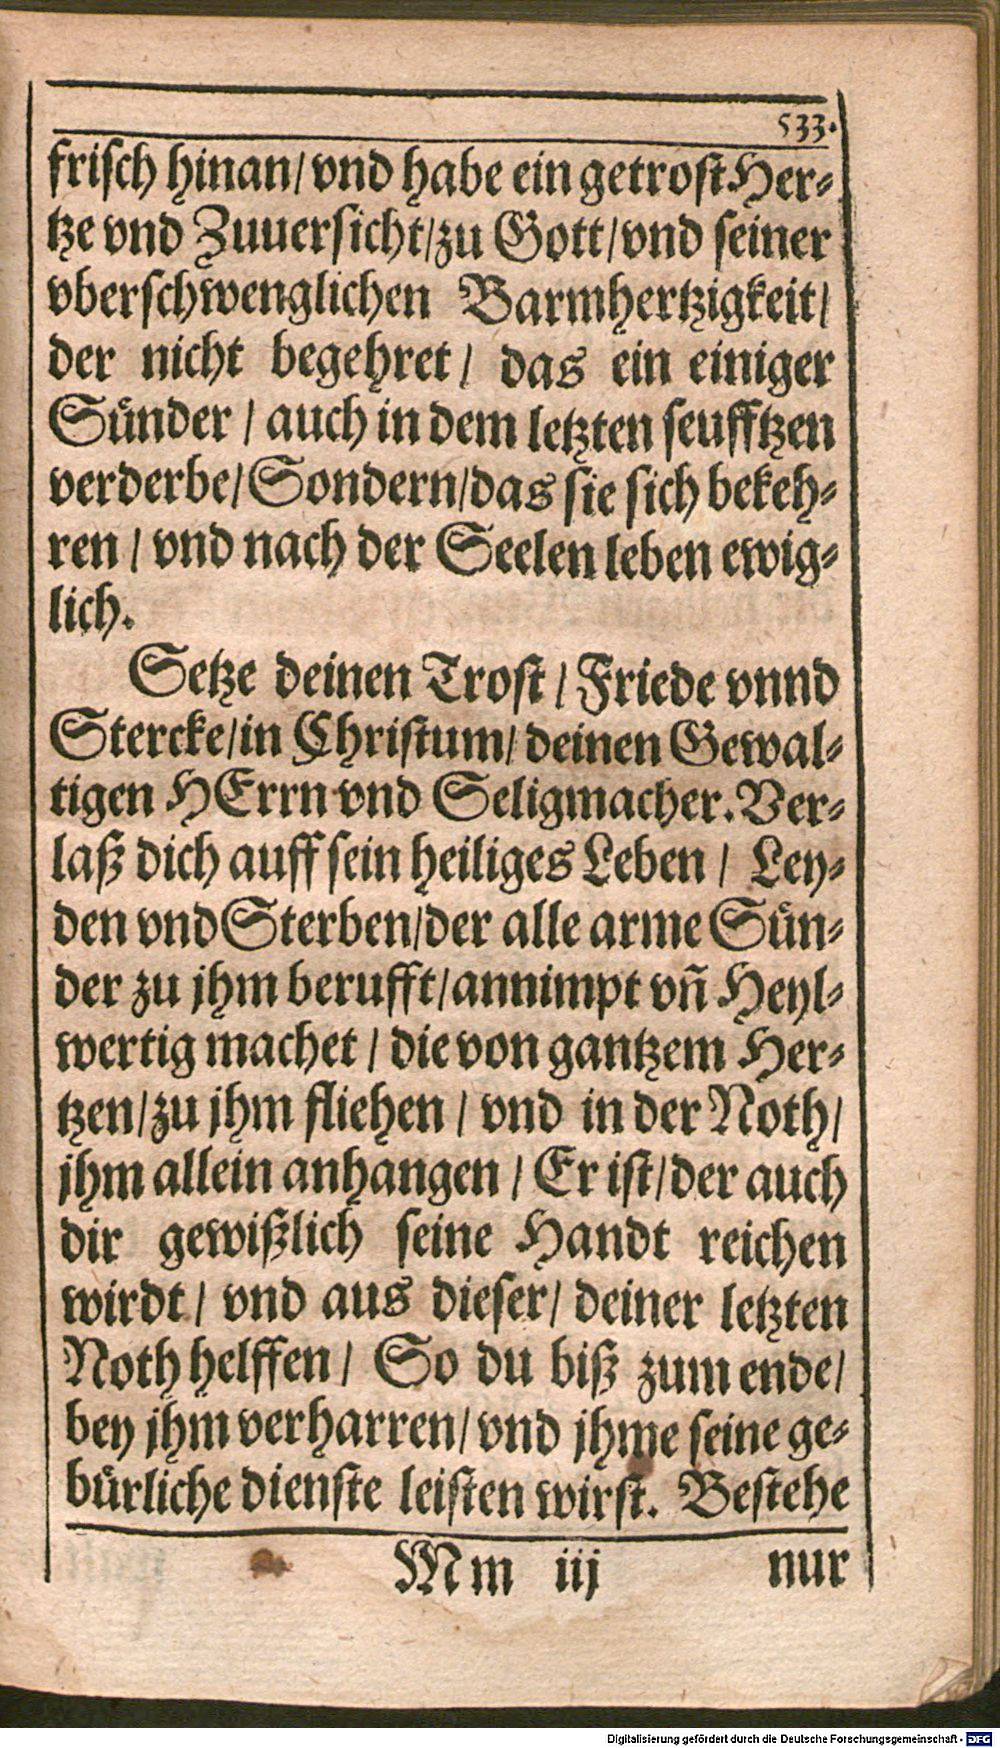 533.
frisch hinan/ vnd habe ein getrost Her-
tze vnd Zuuersicht/zu Gott/vnd seiner
vberschwenglichen Barmhertzigkeit/
der nicht begehret/ das ein einiger
Sünder / auch in dem letzten seufftzen
verderbe/ Sondern/das sie sich bekeh-
ren / vnd nach der Seelen leben ewig-
lich.
Setze deinen Trost / Friede vnnd
Stercke/in Christum/ deinen Gewal-
tigen HErrn vnd Seligmacher. Ver-
laß dich auff sein heiliges Leben / Ley-
den vnd Sterben/der alle arme Sün-
der zu jhm berufft/annimpt vn̄ Heyl-
wertig machet / die von gantzem Her-
tzen/zu jhm fliehen / vnd in der Noth/
jhm allein anhangen / Er ist/der auch
dir gewißlich seine Handt reichen
wirdt/ vnd aus dieser/ deiner letzten
Noth helffen/ So du biß zum ende/
bey jhm verharren/vnd jhme seine ge-
bürliche dienste leisten wirst. Bestehe
Mm iij nur
Digitalisierung gefördert durch die Deutsche Forschungsgemeinschaft - DFG